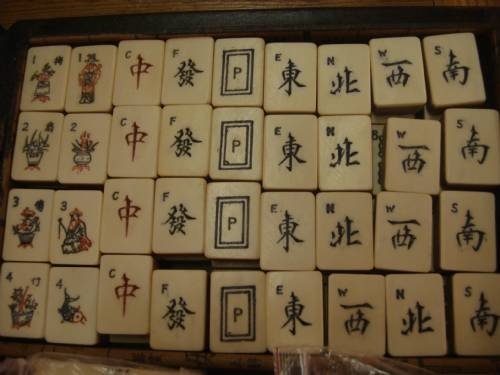 1 1 C 中 F 發 P E 東 N 北 W 西 S 南
2 2 C 中 F 發 P E 東 N 北 W 西 S 南
3 3 C 中 F 發 P E 東 N 北 W 西 S 南
4 竹 4 C 中 F 發 P E 東 W 西 N 北 S 南